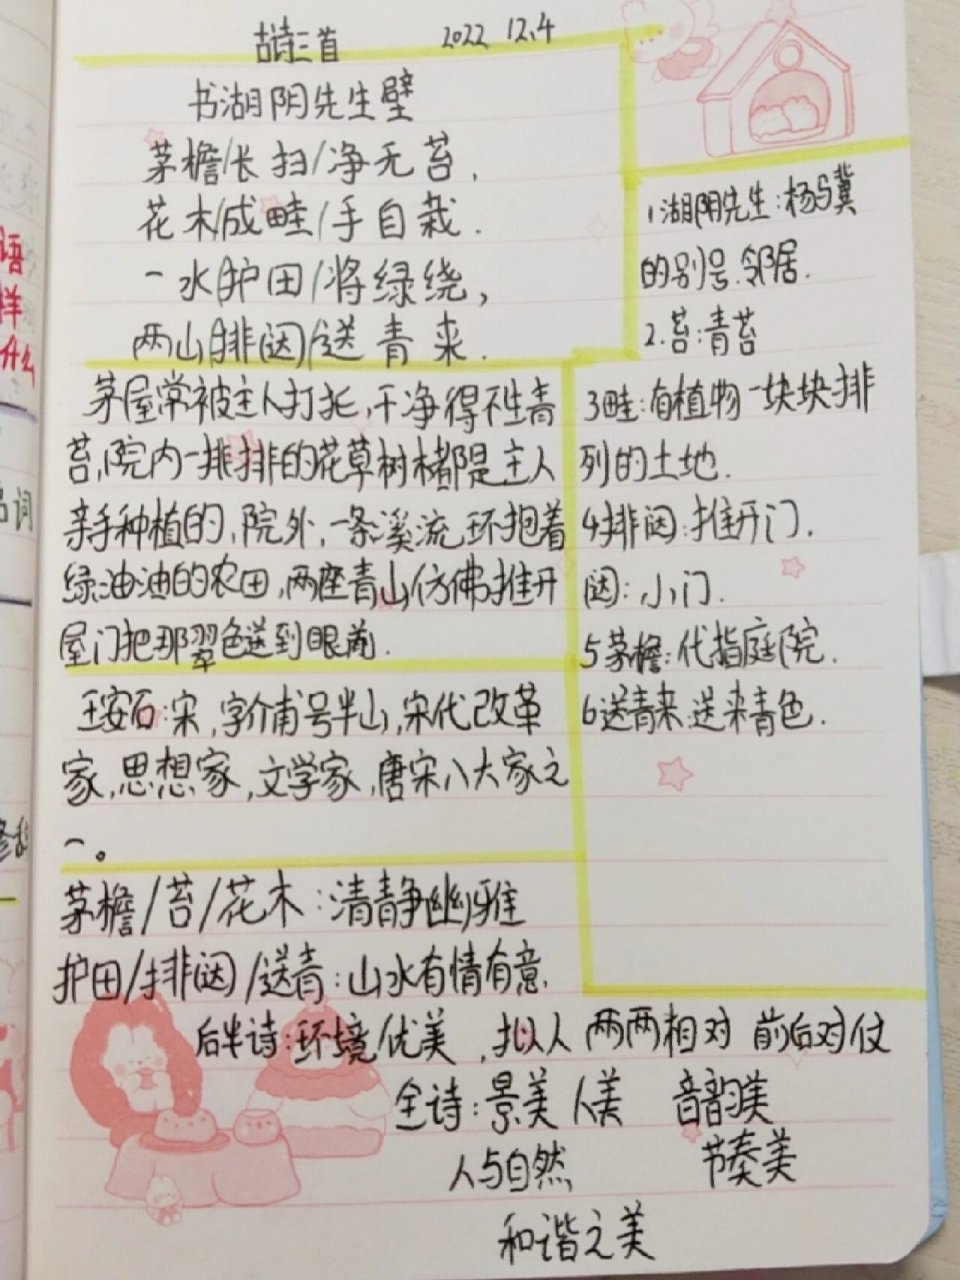 古诗三首 2022 12.4
书湖阴先生壁
茅檐/长扫/净无苔,
花木/成畦/手自栽.
一水/护田/将绿绕,
两山/排闼/送青来.
1湖阴先生:杨骥
的别号.邻居.
2.苔:青苔
茅屋常被主人打扫,干净得不生青
苔,院内一排排的花草树木都是主人
亲手种植的,院外,一条溪流环抱着
绿油油的农田,两座青山仿佛推开
屋门把那翠色送到眼前.
3畦:有植物一块块排
列的土地.
4排闼:推开门.
闼:小门.
5茅檐:代指庭院.
6送青来:送来青色.
王安石:宋,字介甫号半山,宋代改革
家,思想家,文学家,唐宋八大家之
一。
茅檐/苔/花木:清静幽雅
护田/排闼/送青:山水有情有意.
后半诗:环境优美,拟人 两两相对 前后对仗
全诗:景美 人美 音韵美
人与自然 节奏美
和谐之美
语
样
词